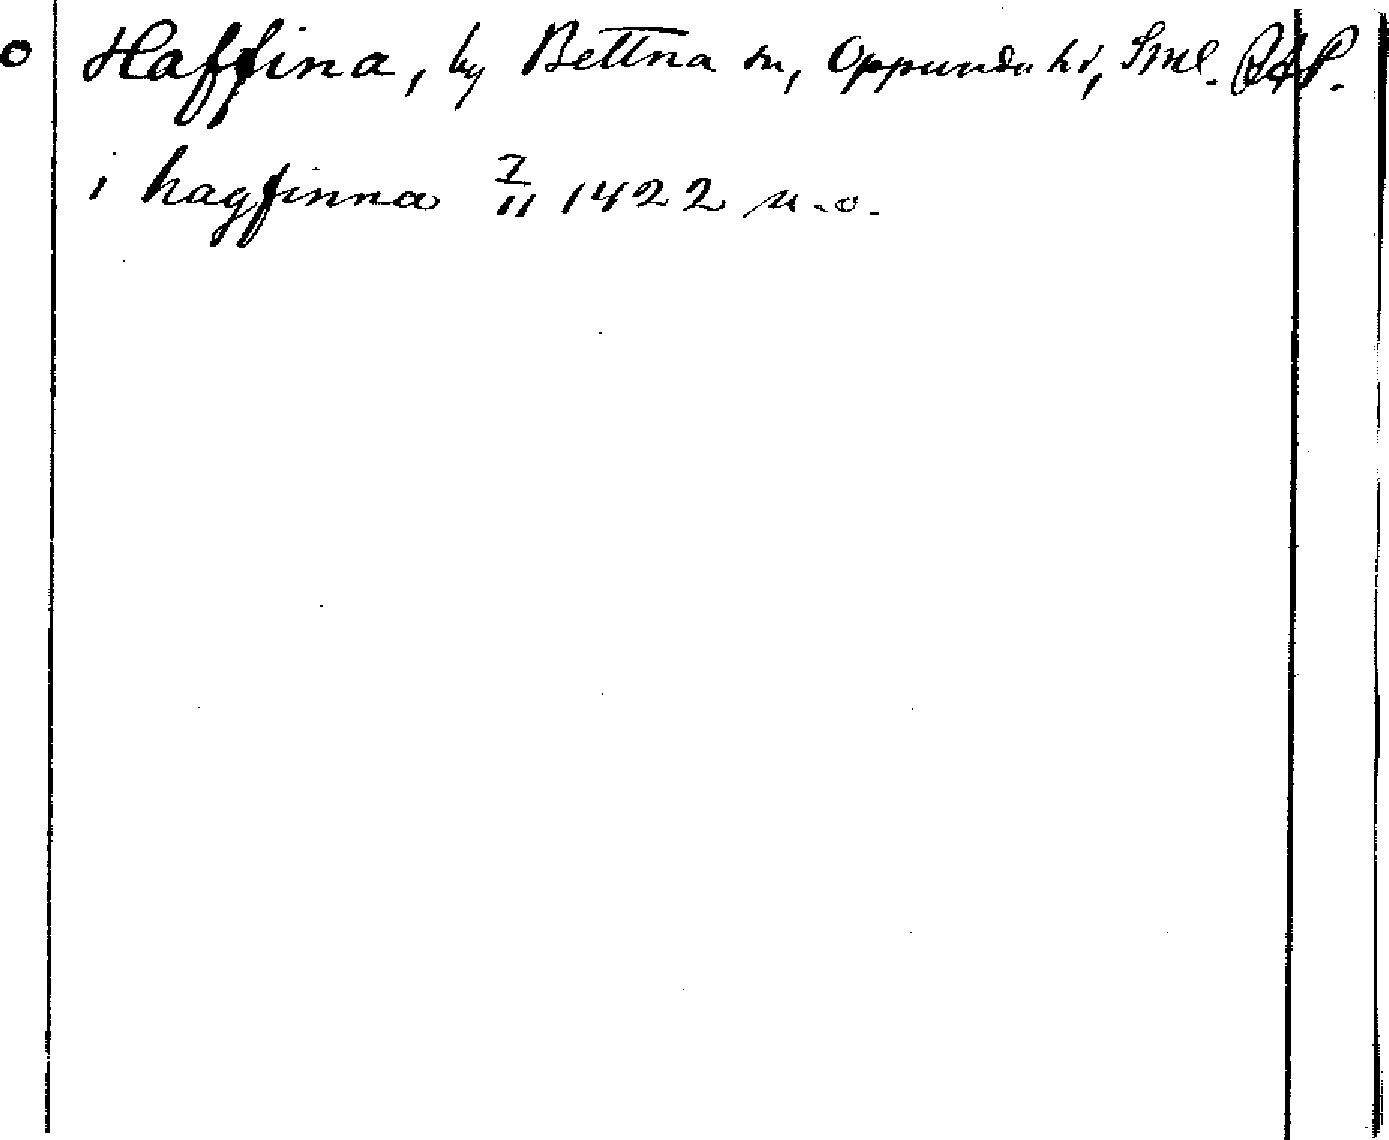 o Haffina, by Bettna sn, Oppunda hd, Sml. RAP.
i hagfinna 7/11 1422 u.o.